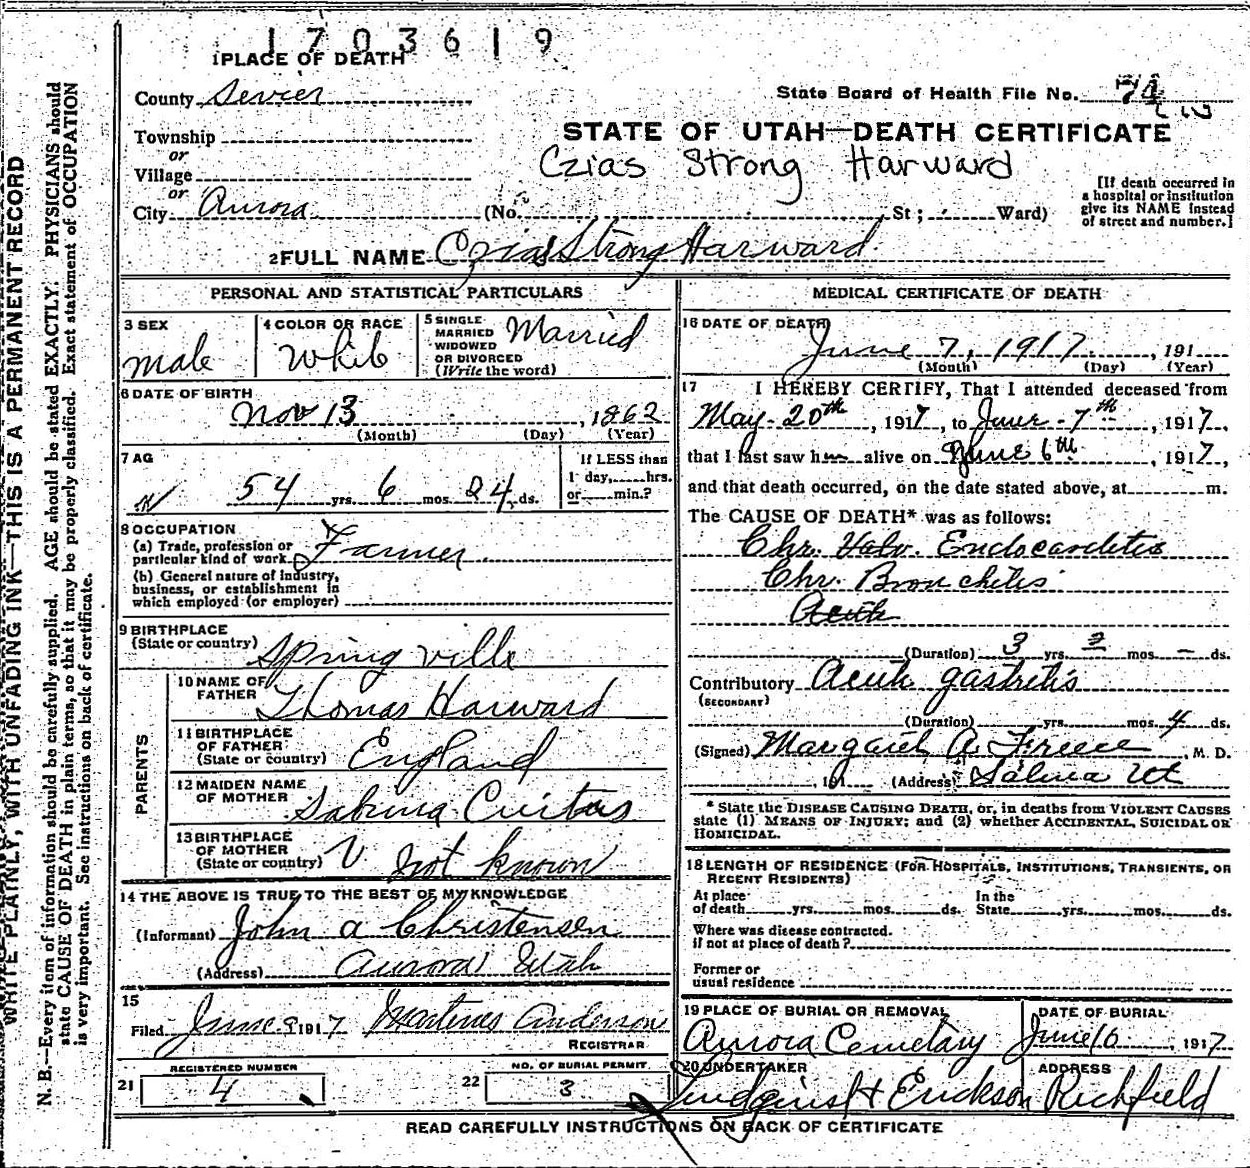 1703619
1 PLACE OF DEATH
County Sevier
State Board of Health File No. 74
Township
or
Village
or
City Aurora
STATE OF UTAH—DEATH CERTIFICATE
Czias Strong Harward
(No. St; Ward)
[If death occurred in
a hospital or institution
give its NAME instead
of street and number.]
2 FULL NAME Czias Strong Harward
PERSONAL AND STATISTICAL PARTICULARS
3 SEX
male
4 COLOR OR RACE
White
5 SINGLE
MARRIED
WIDOWED
OR DIVORCED
(Write the word)
Married
6 DATE OF BIRTH
Nov 13, 1862
(Month) (Day) (Year)
7 AG
54 yrs. 6 mos. 24 ds.
If LESS than
1 day, hrs.
or min.?
8 OCCUPATION
(a) Trade, profession or
particular kind of work Farmer
(b) General nature of industry,
business, or establishment in
which employed (or employer)
9 BIRTHPLACE
(State or country) Springville
PARENTS
10 NAME OF
FATHER
Thomas Harward
11 BIRTHPLACE
OF FATHER
(State or country) England
12 MAIDEN NAME
OF MOTHER
Sabrina Curtus
13 BIRTHPLACE
OF MOTHER
(State or country) not known
14 THE ABOVE IS TRUE TO THE BEST OF MY KNOWLEDGE
(Informant) John A Christensen
(Address) Aurora Utah
15
Filed June 8 1917 Martines Anderson
REGISTRAR
21 REGISTERED NUMBER
4
22 NO. OF BURIAL PERMIT
3
MEDICAL CERTIFICATE OF DEATH
16 DATE OF DEATH
June 7, 1917, 191
(Month) (Day) (Year)
17 I HEREBY CERTIFY, That I attended deceased from
May 20th, 1917, to June 7th, 1917,
that I last saw him alive on June 6th, 1917,
and that death occurred, on the date stated above, at m.
The CAUSE OF DEATH* was as follows:
Chr. Valv. Endocarditis
Chr. Bronchitis
Acute
(Duration) 3 yrs. 2 mos. – ds.
Contributory Acute gastritis
(SECONDARY)
(Duration) yrs. mos. 4 ds.
(Signed) Margaret A Freece, M. D.
191 (Address) Salina Ut
* State the DISEASE CAUSING DEATH, or, in deaths from VIOLENT CAUSES
state (1) MEANS OF INJURY; and (2) whether ACCIDENTAL, SUICIDAL OR
HOMICIDAL.
18 LENGTH OF RESIDENCE (FOR HOSPITALS, INSTITUTIONS, TRANSIENTS, OR
RECENT RESIDENTS)
At place
of death yrs. mos. ds.
In the
State yrs. mos. ds.
Where was disease contracted.
if not at place of death?
Former or
usual residence
19 PLACE OF BURIAL OR REMOVAL
Aurora Cemetary
DATE OF BURIAL
June 10, 1917
20 UNDERTAKER
Lindquist & Erickson
ADDRESS
Richfield
READ CAREFULLY INSTRUCTIONS ON BACK OF CERTIFICATE
WRITE PLAINLY, WITH UNFADING INK—THIS IS A PERMANENT RECORD
N. B.—Every item of information should be carefully supplied. AGE should be stated EXACTLY. PHYSICIANS should
state CAUSE OF DEATH in plain terms, so that it may be properly classified. Exact statement of OCCUPATION
is very important. See instructions on back of certificate.